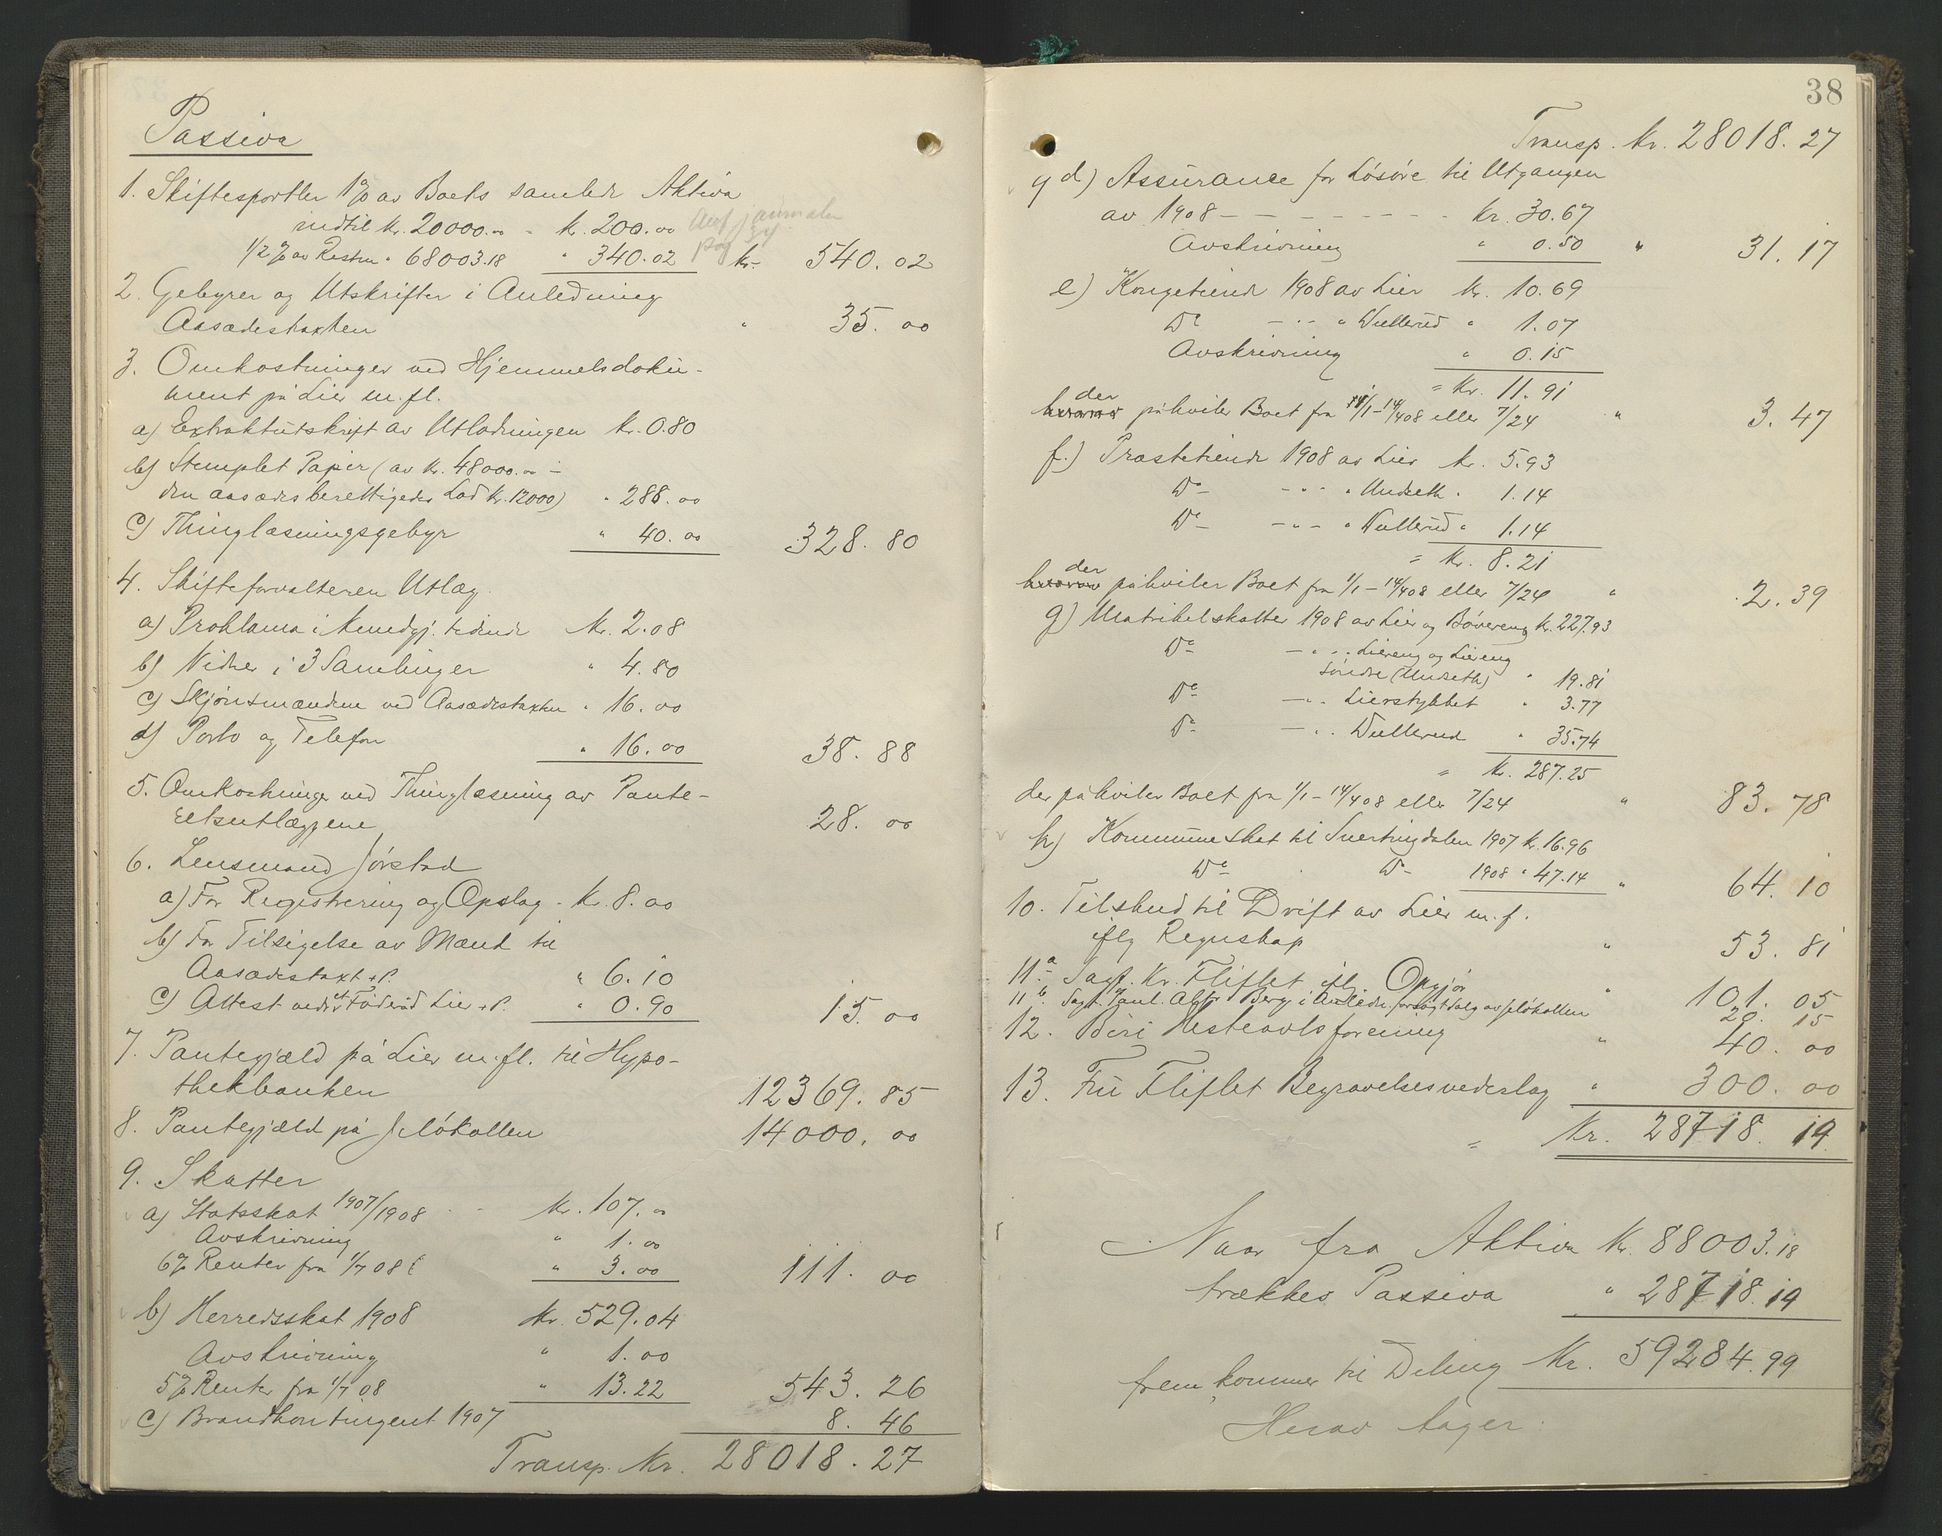 Passiva
1. Skiftesportler 1% av Boets samlede Aktiva
indtil Kr. 20000.00 - K. 200.00
1/2 % av Resten " 68003.18 " 340.02 Kr. 540.02
2. Gebyrer og Utskrifter i Anledning
Aasædestaxten " 35.00
3. Omkostninger ved Hjemmelsdoku-
ment på Lier m.fl.
a) Extraktutskrift av Utlodningen Kr. 0.80
b) Stemplet Papir (av Kr. 48000.00 -
den aasædesberettigedes Lod Kr. 12000) " 288.00
c) Thinglæsningsgebyr " 40.00 328.80
4. Skifteforvalteren Utlæg.
a) Proklama i Kundgj. tidende Kr. 2.08
b) Vidner i 3 Samlinger " 4.80
c) Skjønsmændene ved Aasædestaxten " 16.00
d) Porto og Telefon " 16.00 38.88
5. Omkostninger ved Thinglæsning av Pante-
28.00
6. Lensmand Jørstad
a) For Registrering og Opslag - Kr. 8.00
b) For Tilsigelse av Mænd til
Aasædestaxt + P. " 6.10
c) Attest vedr. Føderåd Lier + P. " 0.90 15.00
7. Pantegjæld på Lier m.fl. til Hypo-
thekbanken 12369.85
8. Pantegjæld på Jeløkollen 14000.00
9. Skatter
a) Statsskat 1907/1908 Kr. 107.00
Avskrivning " 1.00
6% Renter fra 1/7 08 " 3.00 111.00
b) Herredsskat 1908 Kr. 529.04
Avskrivning " 1.00
5% Renter fra 1/7 08 " 13.22 543.26
c) Brandkontingent 1907 8.46
Transp. Kr. 28018.27
38
Transp. Kr. 28018.27
9 d) Assurance for Løsøre til Utgangen
av 1908 - - - - - - - Kr. 30.67
Avskrivning " 0.50 " 31.17
e) Kongetiende 1908 av Lier Kr. 10.69
Do - " - " Dullerud " 1.07
Avskrivning " 0.15
= Kr. 11.91
der
påhviler Boet fra 1/1-14/4 08 eller 7/24 " 3.47
f.) Præstetiende 1908 av Lier Kr. 5.93
Do - - " - " Undseth " 1.14
Do - - " - " Dullerud " 1.14
= Kr. 8.21
der
påhviler Boet fra 1/1-14/4 08 eller 7/24 " 2.39
g) Matrikelskatter 1908 av Lier og Bøvereng K. 227.93
Do - " - Liereng og Liereng
søndre (Undseth) " 19.81
Do - " - Lierstykket " 3.77
Do - " - Dullerud " 35.74
= Kr. 287.25
der påhviler Boet fra 1/1-14/4 08 eller 7/24 " 83.78
h) Kommuneskat til Snertingdalen 1907 K. 16.96
Do Do 1908 " 47.14 " 64.10
10. Tilskud til Drift av Lier m.f.
iflg Regnskap " 53.81
11 a Sagf. Kr. Fliflet iflg. Opgjør " 101.05
11 b. Sagf. Paul Berg i Anledn. forsøgt Salg av Jeløkollen 20.15
12. Biri Hesteavlsforening " 40.00
13. Fru Fliflet Begravelsesvederlag " 300.00
= Kr. 28718.19
Naar fra Aktiva Kr. 88003.18
trækkes Passiva " 28718.19
fremkommer til Deling Kr. 59284.99
Herav tager: